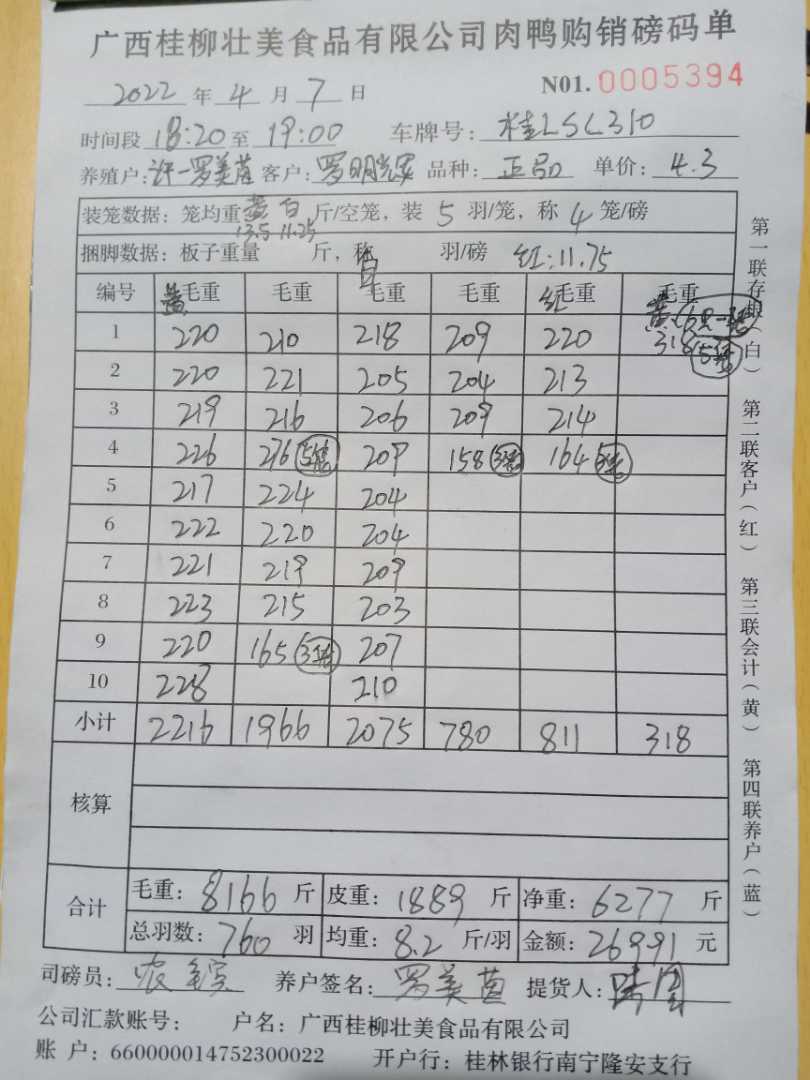 广西桂柳壮美食品有限公司肉鸭购销磅码单
2022 年 4 月 7 日 N01. 0005394
时间段 18:20 至 19:00 车牌号: 桂LSL310
养殖户: 许一罗美苗 客户: 罗明 品种: 正品 单价: 4.3
装笼数据: 笼均重 黄 白 斤/空笼, 装 5 羽/笼, 称 4 笼/磅
13.5 11.25
捆脚数据: 板子重量 斤, 称 羽/磅 红:11.75
编号 黄毛重 毛重 白毛重 毛重 红毛重 毛重
黄 (6只一笼)
1 220 210 218 209 220 318 (5笼)
2 220 221 205 204 213
3 219 216 206 209 214
4 226 276 (5笼) 209 158 (3笼) 164 (3笼)
5 217 224 204
6 222 220 204
7 221 219 209
8 223 215 203
9 220 165 (3笼) 207
10 228 210
小计 2216 1966 2075 780 811 318
核算
合计
毛重: 8166 斤 皮重: 1889 斤 净重: 6277 斤
总羽数: 760 羽 均重: 8.2 斤/羽 金额: 26991 元
司磅员: 农 养户签名: 罗美苗 提货人:
公司汇款账号: 户名: 广西桂柳壮美食品有限公司
账 户: 660000014752300022 开户行: 桂林银行南宁隆安支行
第一联存根(白) 第二联客户(红) 第三联会计(黄) 第四联养户(蓝)